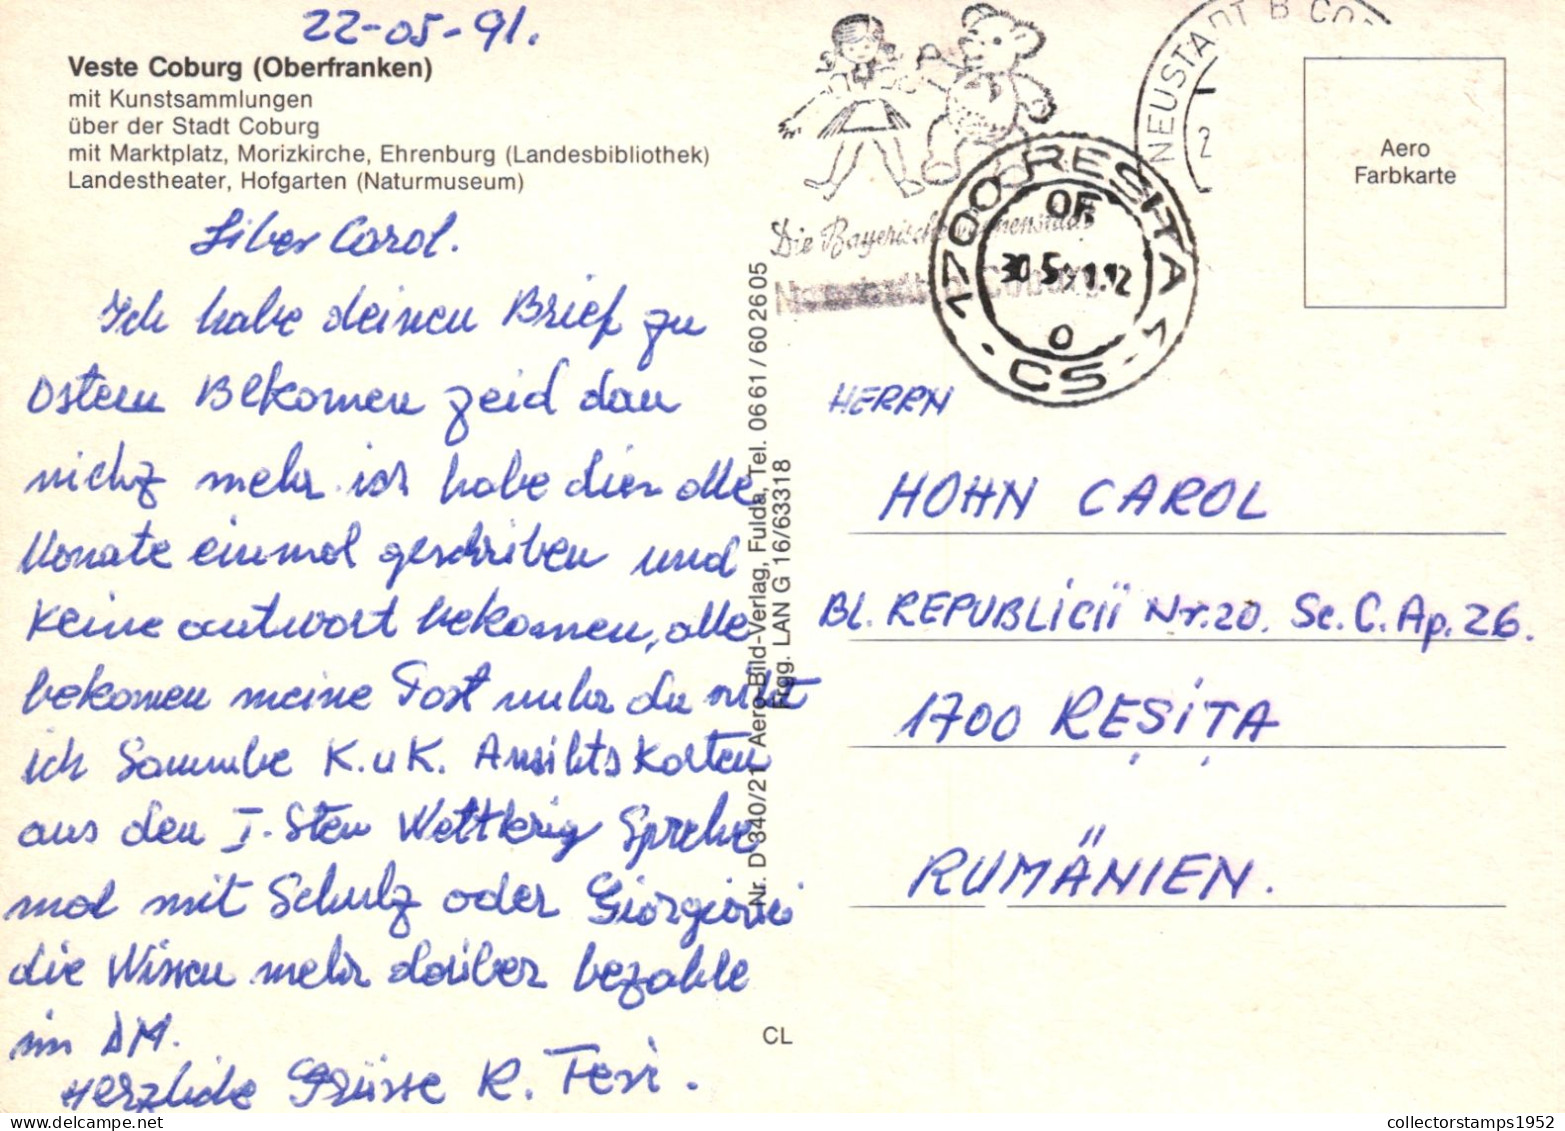 22-05-91.
Veste Coburg (Oberfranken)
mit Kunstsammlungen
über der Stadt Coburg
mit Marktplatz, Morizkirche, Ehrenburg (Landesbibliothek)
Landestheater, Hofgarten (Naturmuseum)
Liber Carol.
Ich habe deinen Brief zu
Ostern Bekomen zeid dan
nichz mehr ich habe dir alle
Monate einmal geschriben und
keine antwort bekomen, alle
bekomen meine Post nuhr du nicht
ich Sammbe K.u K. Ansihts Karten
aus den I. Sten Weltkrig Sprehe
mal mit Schulz oder Giorgiovici
die Wissen mehr darüber bezahle
im DM.
Herzliche Grüsse R. Feri.
Nr. D 340/21 Aero-Bild-Verlag, Fulda, Tel. 06 61 / 60 26 05
Frgg. LAN G 16/63318
CL
Die Bayerische
NEUSTADT B CO
2
1700 RESITA 1
OF.
30.5.91.12
O
CS
Aero
Farbkarte
HERRN
HOHN CAROL
BL. REPUBLICII Nr.20. Sc. C. Ap. 26.
1700 REȘIȚA
RUMÄNIEN.
collectorstamps1952